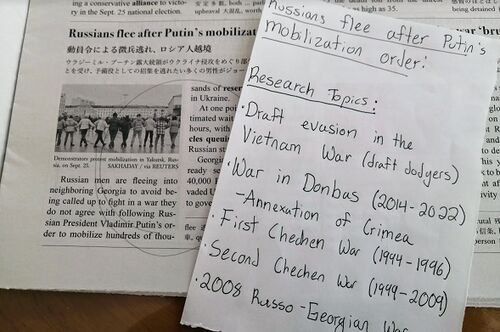 ing a conservative alliance to victo-
ry in the Sept. 25 national election.
Russians flee after Putin's mobilizat
動員令による徴兵逃れ、ロシア人越境
ウラジーミル・プーチン露大統領がウクライナ侵攻をめぐり部
とを受け、予備役としての招集を逃れたい多くの男性がジョー
Demonstrators protest mobilization in Yakutsk, Rus-
sia, on Sept. 25. SAKHADAY / via REUTERS
Russian men are fleeing into
neighboring Georgia to avoid be-
ing called up to fight in a war they
do not agree with following Rus-
sian President Vladimir Putin's or-
der to mobilize hundreds of thou-
sands of
in Ukraine.
At one poi
timated wait
hours, with
cles queu
Russian st
Georgi
ready se
40,000
vaded U
to gove
flee
Russians flee after Putin's
mobilization order:
Research Topics:
・Draft evasion in the
Vietnam War (draft dodgers)
・War in Donbas (2014-2022)
-Annexation of Crimea
・First Chechen War (1994-1996)
・Second Chechen War (1999-2009)
・2008 Russo-Georgian War